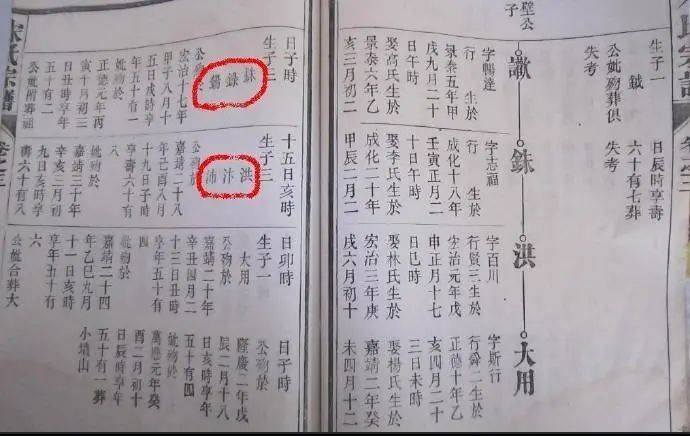 氏宗譜
卷之三
生子一
鉞
公妣歿葬俱
失考
日辰時享壽
六十有七葬
失考
璧公子
字暢達
行 生於
景泰五年甲
戌九月二十
娶高氏生於
景泰六年乙
亥三月初二
銖
字志福
行 生於
成化十八年
壬寅正月二
十日午時
娶李氏生於
成化二十年
甲辰二月二
洪
字百川
行賢三生於
宏治元年戊
申正月十七
日巳時
娶林氏生於
宏治三年庚
戌六月初十
大用
字斯行
行舜二生於
正德十年乙
亥四月二十
三日未時
娶楊氏生於
嘉靖二年癸
未四月十二
日子時
生子三
銖錄錫
公歿於
宏治十七年
甲子八月十
五日戌時享
年五十有一
妣歿於
正德元年丙
寅十月初三
日丑時享年
五十有二
十五日亥時
生子三
洪汴沛
公歿於
嘉靖二十八
年己酉八月
十九日子時
享壽六十有
八
妣歿於
嘉靖三十年
辛亥三月初
九日亥時享
壽六十有八
日卯時
生子一
大用
公歿於
嘉靖二十年
辛丑四月二
十三日丑時
享年五十有
四
妣歿於
嘉靖二十四
年乙巳九月
十一日亥時
享年五十有
六
公妣合葬大
日子時
公歿於
隆慶二年戊
辰二月十八
日亥時享年
五十有四
妣歿於
萬曆元年癸
酉二月初十
日辰時享年
五十有一葬
小塘山
氏宗譜
卷之三